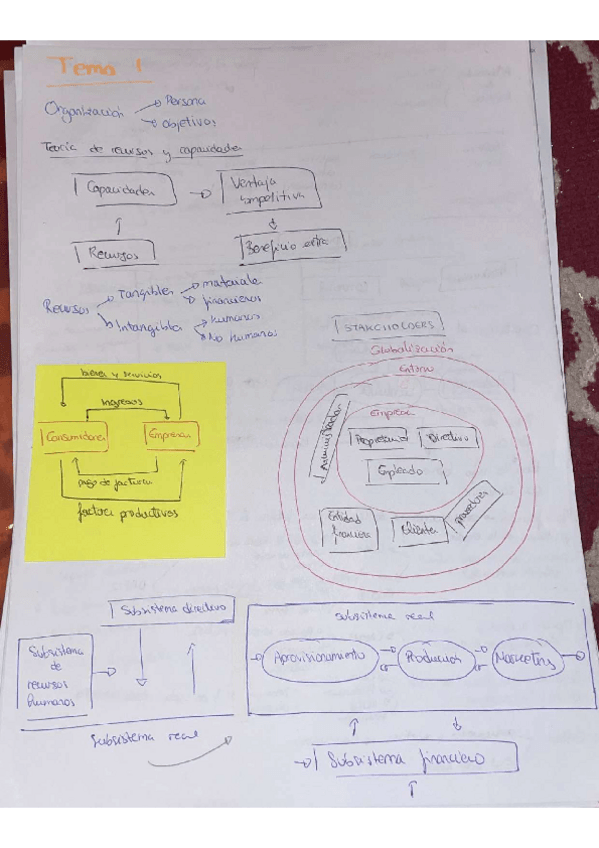 Tema 1
Organización
Persona
objetivos
Teoría de recursos y capacidades
Capacidades
Ventaja
competitiva
Recursos
Beneficio extra
Recursos
Tangibles
materiales
financieros
Intangibles
humanos
No humanos
STAKEHOLDERS
Globalización
Entorno
Empresa
Administrador
Propietario
Directivo
Empleado
Entidad
financiera
Cliente
Proveedores
bienes y servicios
Ingresos
Consumidores
Empresas
pago de facturas
factores productivos
Subsistema directivo
Subsistema
de
recursos
humanos
Subsistema real
Subsistema real
Aprovisionamiento
Producción
Marketing
Subsistema financiero